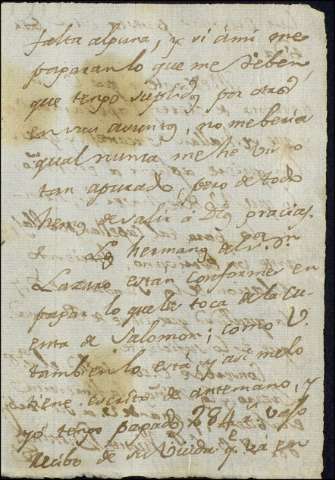 falta alguna, y si á mi me
pagaran lo que me deben,
que tengo suplido por otros
en sus asuntos, no me veria
qual nunca me he visto
tan apurado, pero de todo
he de salir á Dios gracias.
Los hermanos de Dn
Lazaro estan conformes en
pagar lo que le toca de la cu-
enta de Salomon; como V.
tambien lo está, y asi me lo
tiene escrito de antemano, y
yo tengo pagado 284 vajo
recibo de su Viuda qe vá en